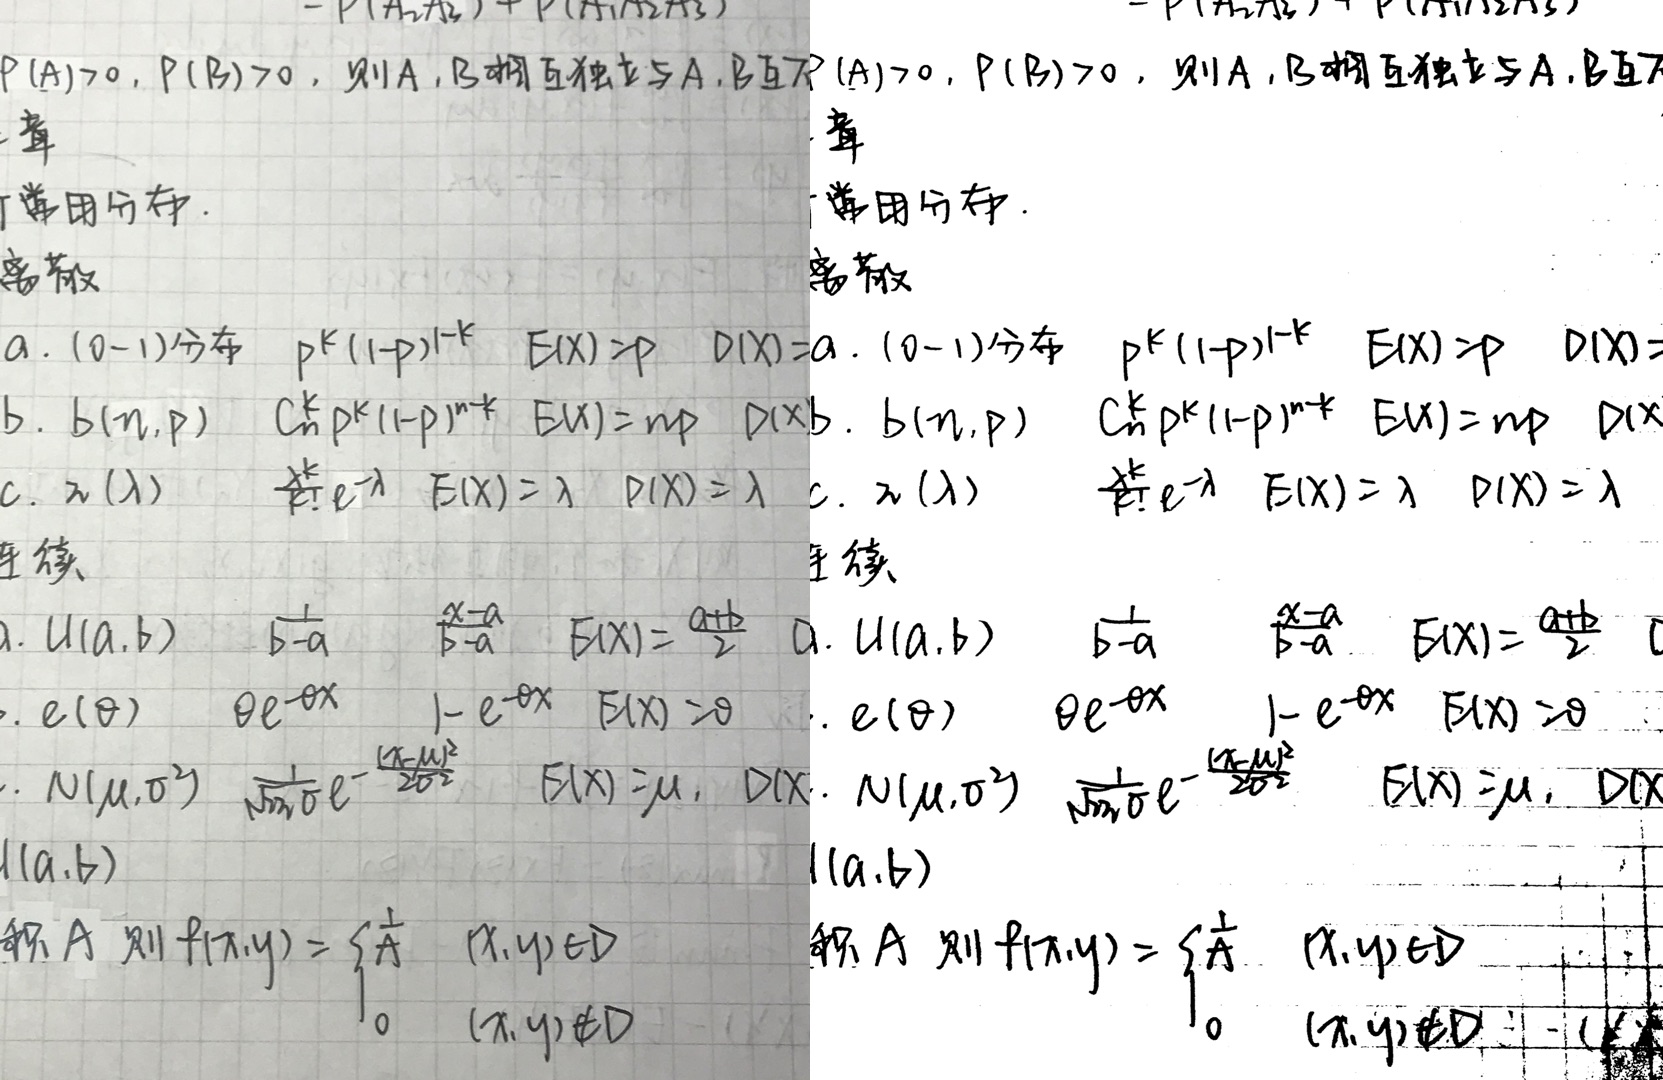 - P(A₂A₃) + P(A₁A₂A₃)
P(A)>0, P(B)>0, 则A,B相互独立与A,B互
章
常用分布.
离散
a. (0-1)分布 p^k(1-p)^{1-k} E(X)=p D(X)=
b. b(n,p) C_n^k p^k(1-p)^{n-k} E(X)=np D(X
c. π(λ) \frac{λ^k}{k!} e^{-λ} E(X)=λ D(X)=λ
连续
a. U(a,b) \frac{1}{b-a} \frac{x-a}{b-a} E(X)=\frac{a+b}{2}
. e(θ) θe^{-θx} 1-e^{-θx} E(X)=θ
. N(μ,σ²) \frac{1}{\sqrt{2π}σ} e^{-\frac{(x-μ)²}{2σ²}} E(X)=μ, D(X
U(a,b)
积A 则 f(x,y) = { \frac{1}{A} (x,y)∈D
0 (x,y)∉D
- P(A₂A₃) + P(A₁A₂A₃)
P(A)>0, P(B)>0, 则A,B相互独立与A,B互
章
常用分布.
离散
a. (0-1)分布 p^k(1-p)^{1-k} E(X)=p D(X)=
b. b(n,p) C_n^k p^k(1-p)^{n-k} E(X)=np D(X
c. π(λ) \frac{λ^k}{k!} e^{-λ} E(X)=λ D(X)=λ
连续
a. U(a,b) \frac{1}{b-a} \frac{x-a}{b-a} E(X)=\frac{a+b}{2}
. e(θ) θe^{-θx} 1-e^{-θx} E(X)=θ
. N(μ,σ²) \frac{1}{\sqrt{2π}σ} e^{-\frac{(x-μ)²}{2σ²}} E(X)=μ, D(X
U(a,b)
积A 则 f(x,y) = { \frac{1}{A} (x,y)∈D
0 (x,y)∉D